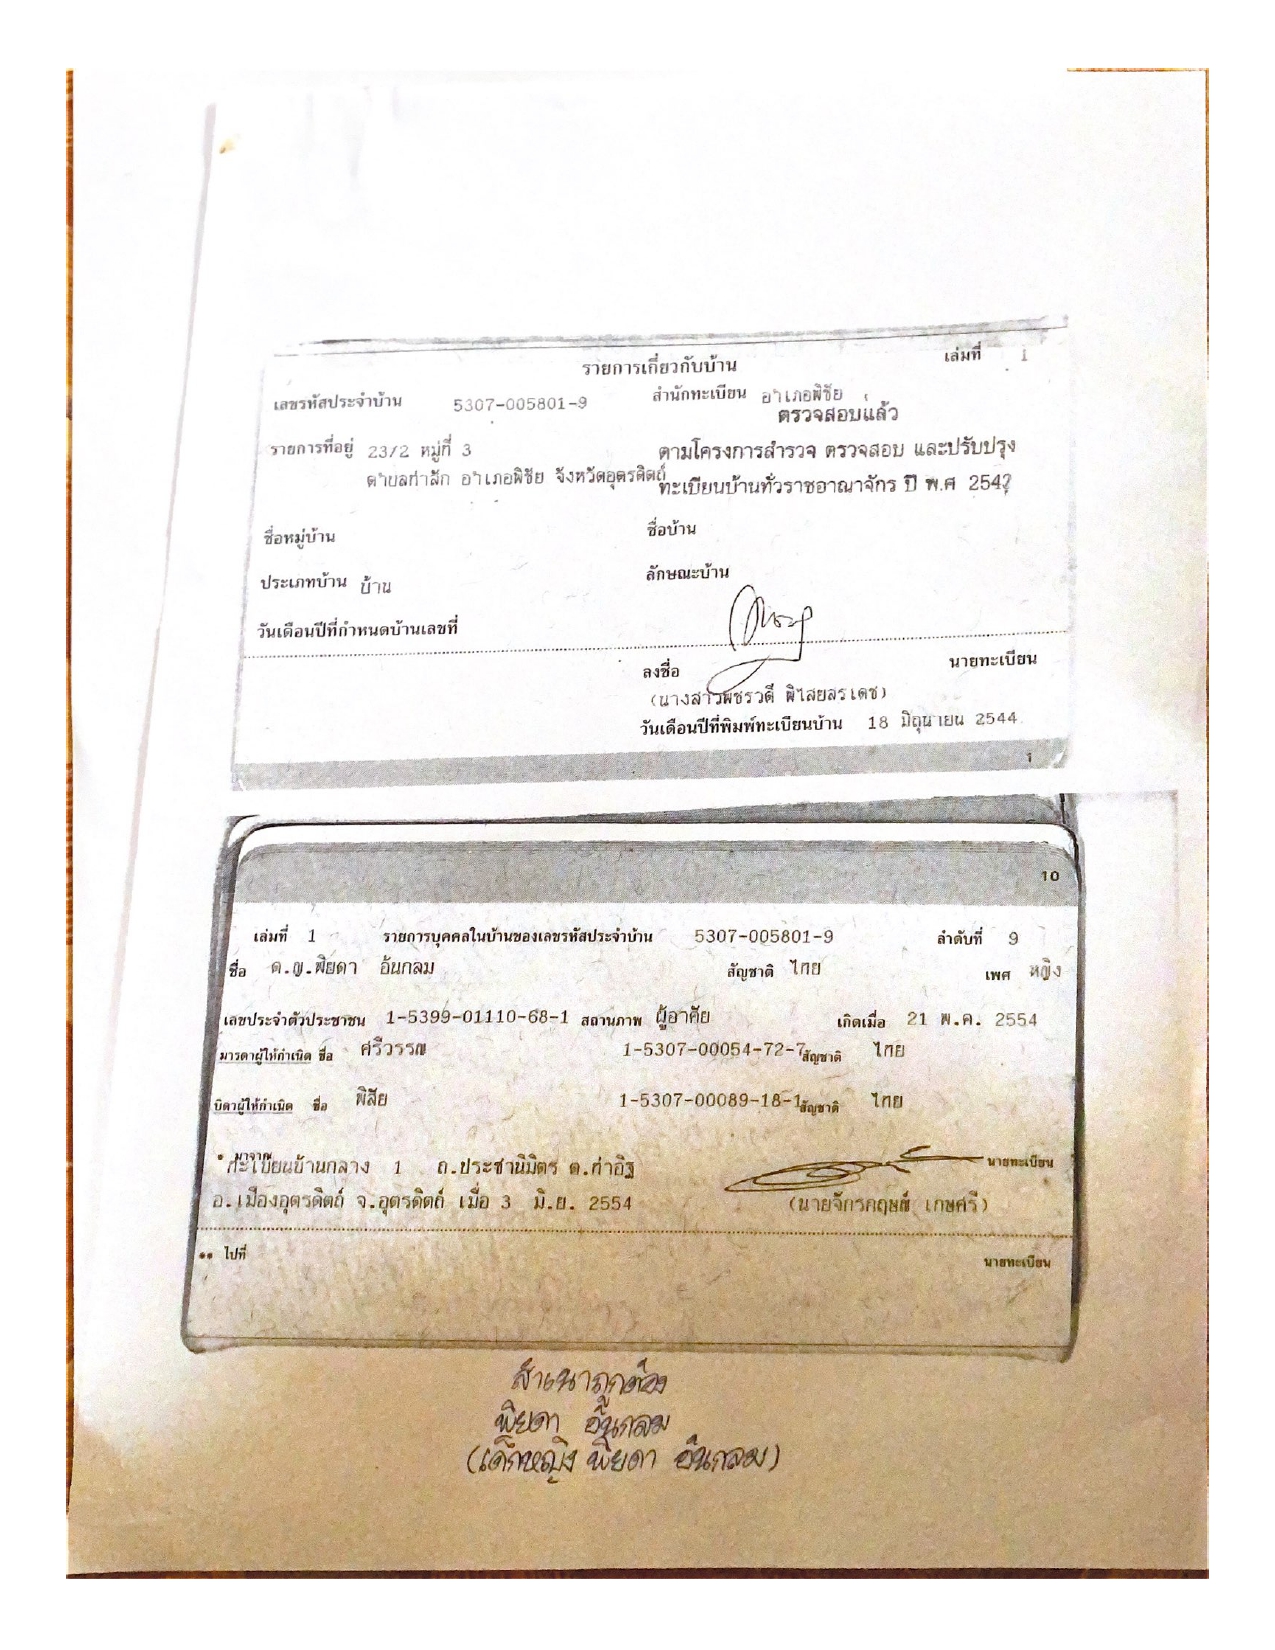 รายการเกี่ยวกับบ้าน เล่มที่ 1
เลขรหัสประจำบ้าน 5307-005801-9 สำนักทะเบียน อำเภอพิชัย
ตรวจสอบแล้ว
รายการที่อยู่ 23/2 หมู่ที่ 3 ตามโครงการสำรวจ ตรวจสอบ และปรับปรุง
ตำบลท่าสัก อำเภอพิชัย จังหวัดอุตรดิตถ์ ทะเบียนบ้านทั่วราชอาณาจักร ปี พ.ศ 2542
ชื่อหมู่บ้าน ชื่อบ้าน
ประเภทบ้าน บ้าน ลักษณะบ้าน
วันเดือนปีที่กำหนดบ้านเลขที่
ลงชื่อ นายทะเบียน
(นางสาวพัชรวดี พิไสยสรเดช)
วันเดือนปีที่พิมพ์ทะเบียนบ้าน 18 มิถุนายน 2544
1
10
เล่มที่ 1 รายการบุคคลในบ้านของเลขรหัสประจำบ้าน 5307-005801-9 ลำดับที่ 9
ชื่อ ด.ญ.พิยดา อ้นกลม สัญชาติ ไทย เพศ หญิง
เลขประจำตัวประชาชน 1-5399-01110-68-1 สถานภาพ ผู้อาศัย เกิดเมื่อ 21 พ.ค. 2554
มารดาผู้ให้กำเนิด ชื่อ ศรีวรรณ 1-5307-00054-72-7 สัญชาติ ไทย
บิดาผู้ให้กำเนิด ชื่อ พิสัย 1-5307-00089-18-1 สัญชาติ ไทย
* มาจาก ทะเบียนบ้านกลาง 1 ถ.ประชานิมิตร ต.ท่าอิฐ นายทะเบียน
อ.เมืองอุตรดิตถ์ จ.อุตรดิตถ์ เมื่อ 3 มิ.ย. 2554 (นายจักรกฤษณ์ เกษศรี)
** ไปที่ นายทะเบียน
สำเนาถูกต้อง
พิยดา อ้นกลม
(เด็กหญิง พิยดา อ้นกลม)